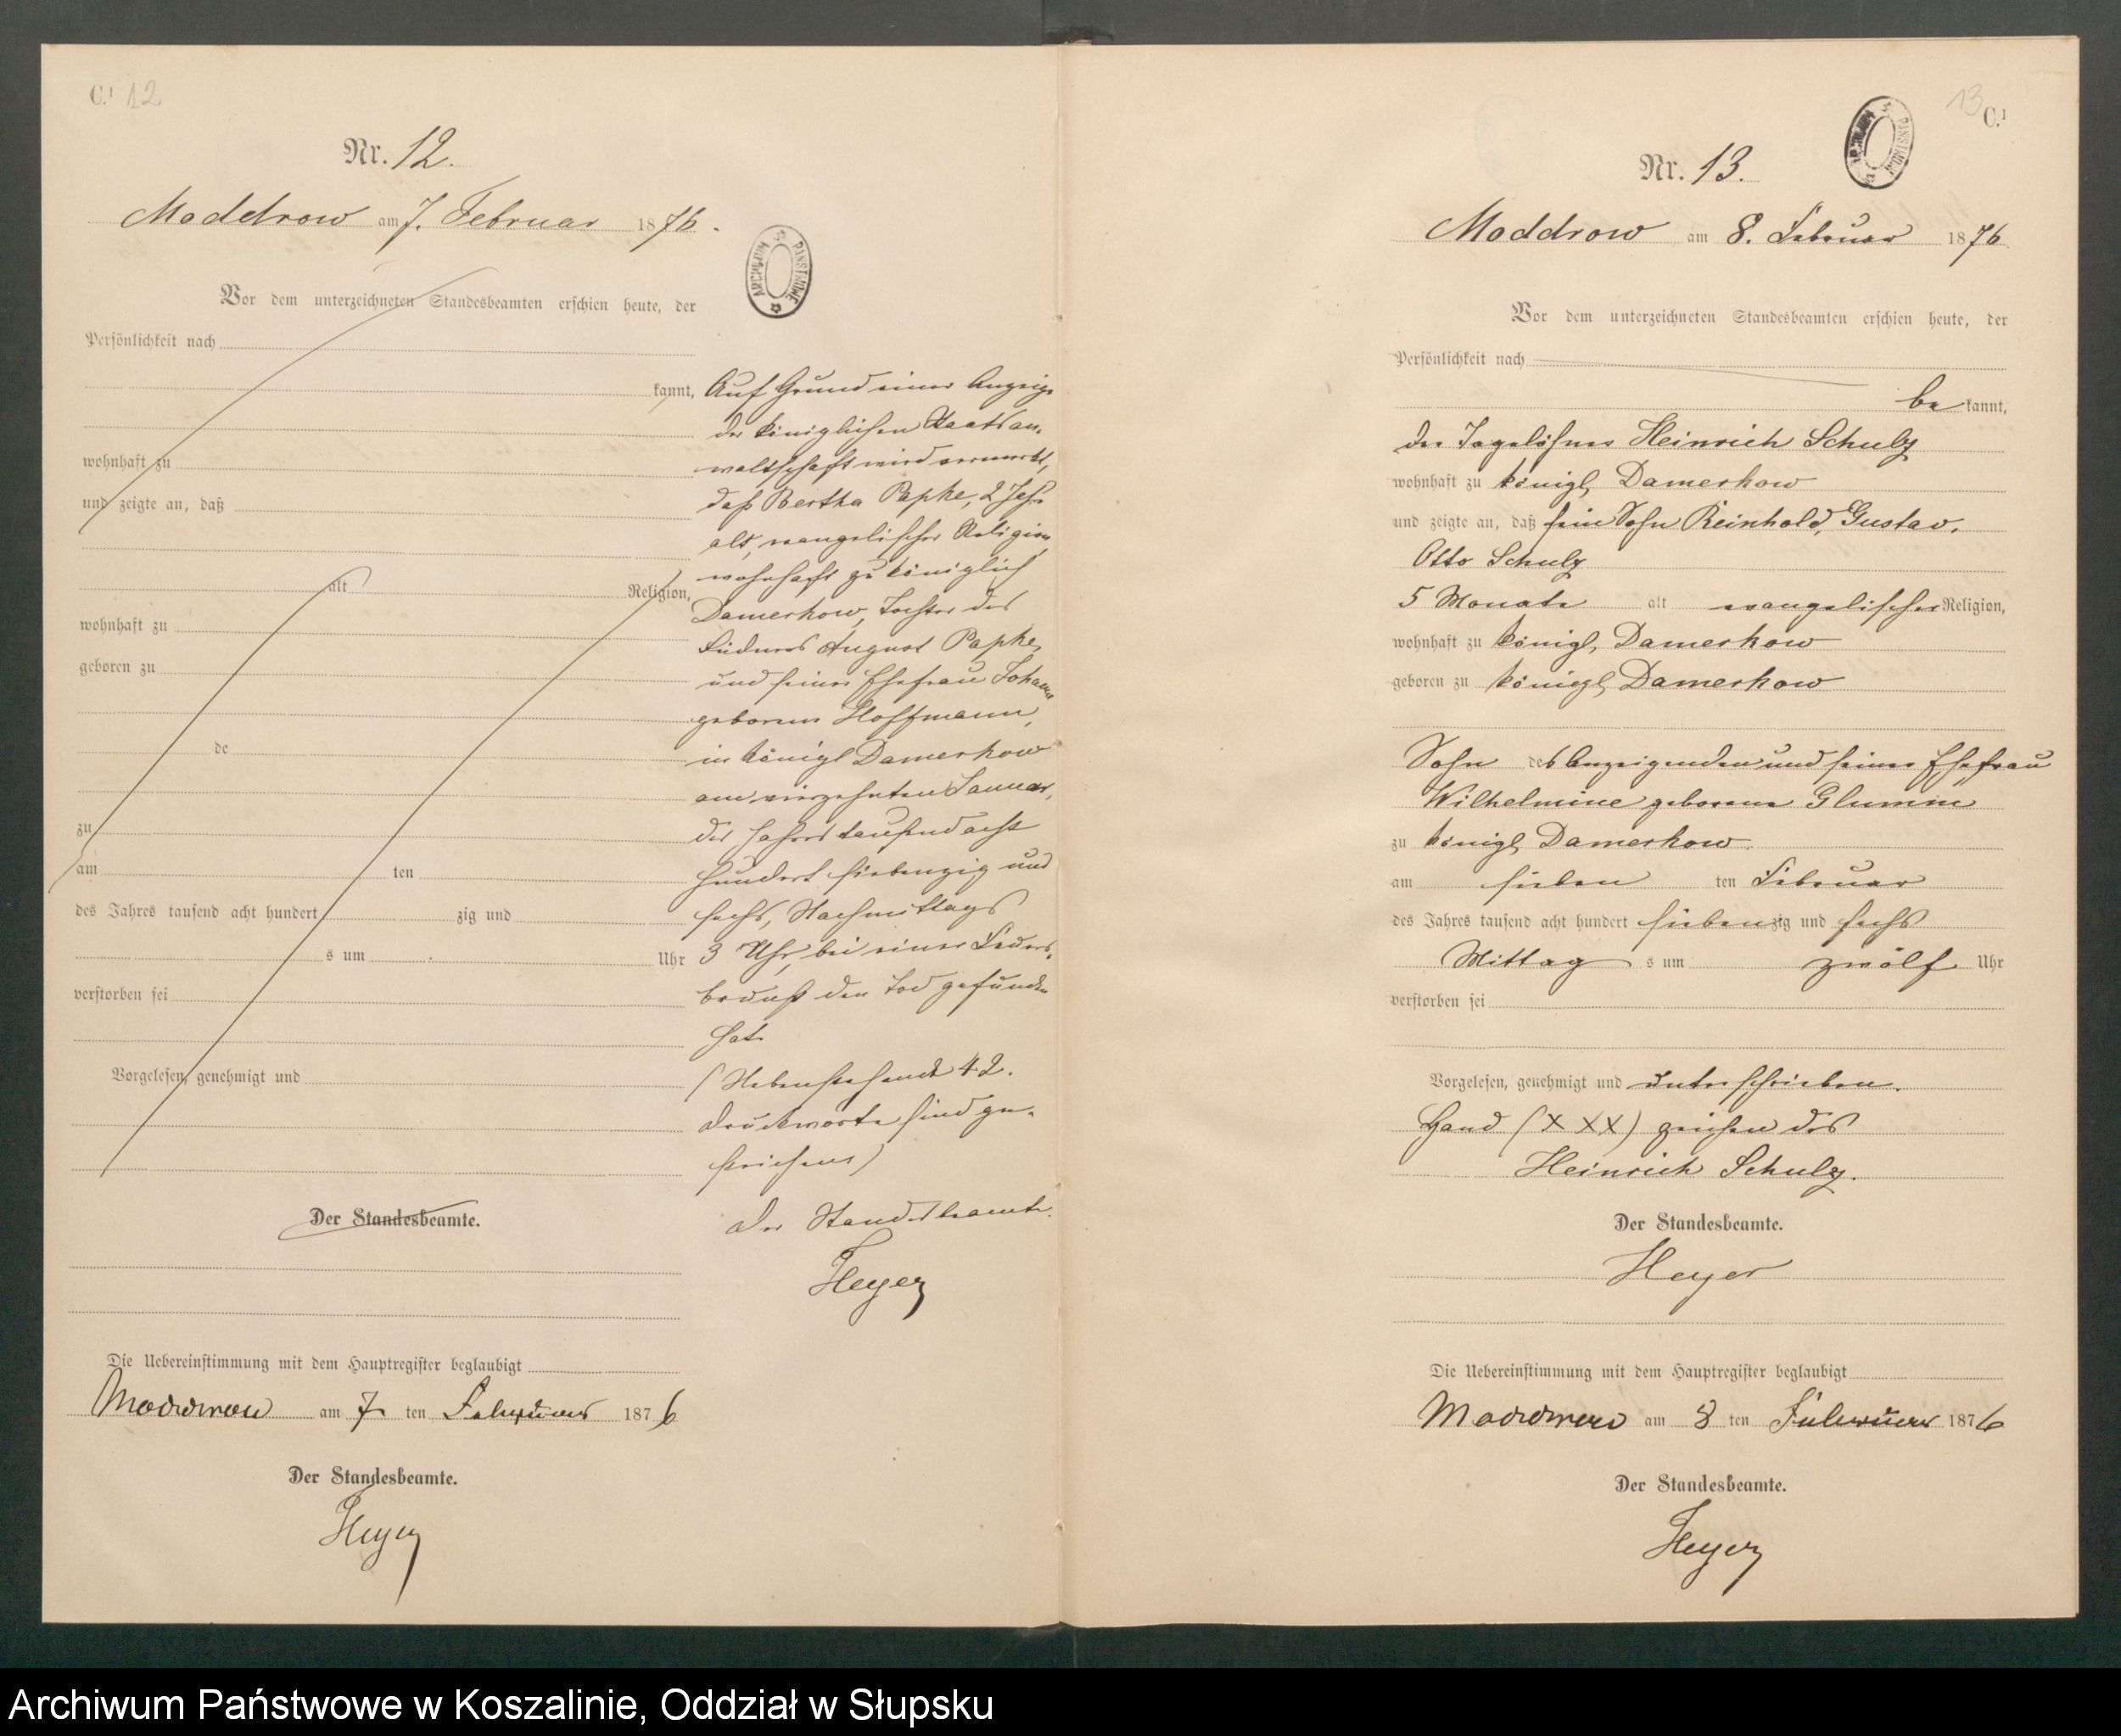 C.¹ 12
Nr. 12.
Moddrow am 7. Februar 1876.
ARCHIWUM PAŃSTWOWE
Vor dem unterzeichneten Standesbeamten erschien heute, der
Persönlichkeit nach
kannt,
wohnhaft zu
und zeigte an, daß
alt Religion,
wohnhaft zu
geboren zu
de
zu
am ten
des Jahres tausend acht hundert zig und
s um Uhr
verstorben sei
Vorgelesen, genehmigt und
Der Standesbeamte.
Auf Grund einer Anzeige
der königlichen Staatsan-
waltschaft wird vermerkt,
daß Bertha Papke, 2 Jahr
alt, evangelischer Religion,
wohnhaft zu königlich
Damerkow, Tochter des
Büdners August Papke,
und seiner Ehefrau Johanna
geborene Hoffmann,
in königl Damerkow
am vierzehnten Januar,
des Jahres tausend acht
hundert siebenzig und
sechs, Nachmittags
3 Uhr, bei einer Feuers-
brunst den Tod gefunden
hat.
(Nebenstehende 42.
Druckworte sind ge-
strichen)
Der Standesbeamte.
Heyer
Die Uebereinstimmung mit dem Hauptregister beglaubigt
Moddrow am 7 ten Februar 1876
Der Standesbeamte.
Heyer
13 C.¹
ARCHIWUM PAŃSTWOWE
Nr. 13.
Moddrow am 8. Februar 1876
Vor dem unterzeichneten Standesbeamten erschien heute, der
Persönlichkeit nach
be kannt,
der Tagelöhner Heinrich Schulz
wohnhaft zu königl, Damerkow
und zeigte an, daß sein Sohn Reinhold, Gustav,
Otto Schulz
5 Monate alt evangelischer Religion,
wohnhaft zu königl, Damerkow
geboren zu königl, Damerkow
Sohn des Anzeigenden und seiner Ehefrau
Wilhelmine geborene Glumm
zu königl, Damerkow.
am sieben ten Februar
des Jahres tausend acht hundert siebenzig und sechs
Mittag s um zwölf Uhr
verstorben sei
Vorgelesen, genehmigt und unterschrieben.
Hand (XXX) zeichen des
Heinrich Schulz.
Der Standesbeamte.
Heyer
Die Uebereinstimmung mit dem Hauptregister beglaubigt
Moddrow am 8 ten Februar 1876
Der Standesbeamte.
Heyer
Archiwum Państwowe w Koszalinie, Oddział w Słupsku